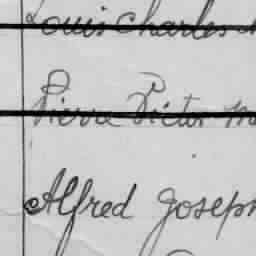 Louis Charles
Pierre Victor
Alfred Joseph